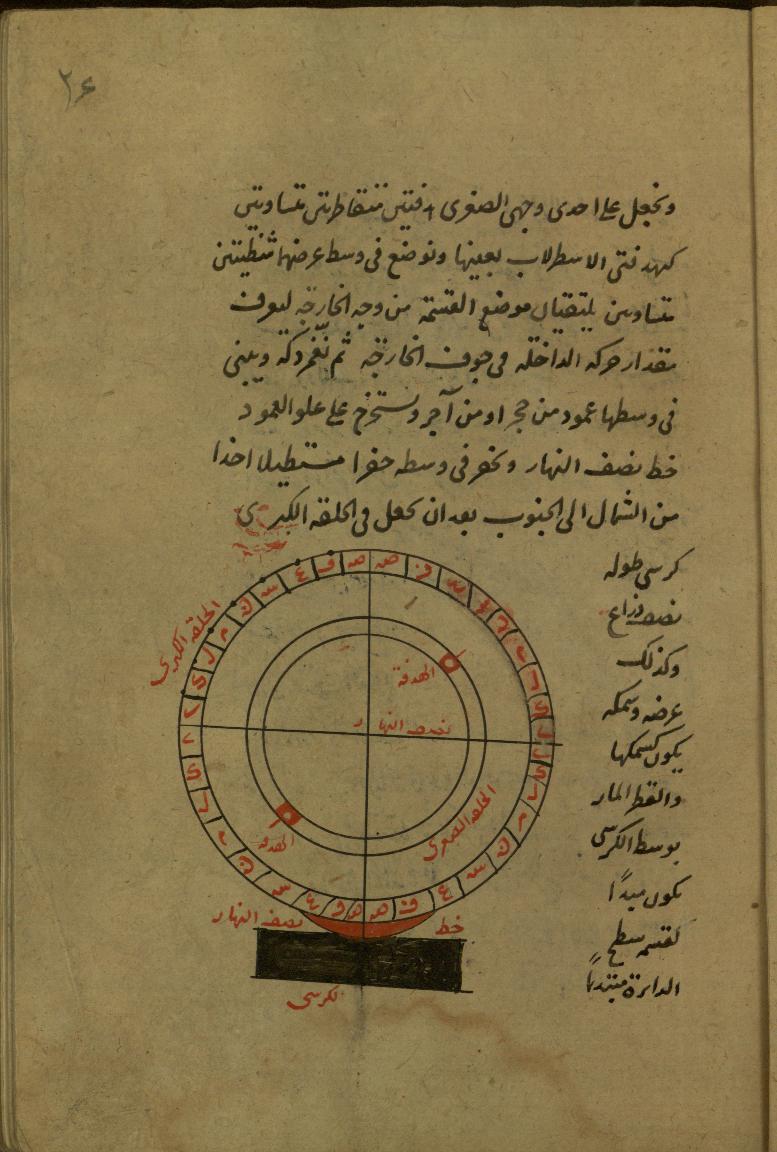 ٢٤
ونجعل على احدى وجهى الصغرى هدفتين متقاطرتين متساويتين
كهدفتى الاسطرلاب بعينها ونوضع فى وسط عرضهما شظيتين
متساويتين يلتقيان موضع القسمة من وجه الخارجه ليعرف
مقدار حركه الداخله فى جوف الخارجه ثم
فى وسطها عمود من حجر او من آجر ونستخرج على علو العمود
خط نصف النهار ونحفر فى وسطه حفرا مستطيلا اخدا
من الشمال الى الجنوب بعد ان نجعل فى الحلقه الكبرى
كرسى طوله
نصف ذراع
وكذلك
عرضه وسمكه
يكون كسمكها
والقطر المار
بوسط الكرسى
يكون مبدًا
لقسمه سطح
الدايرة مبتديًا
الحلقه الكبرى
الهدفة
نصف النهار
الحلقه الصغرى
الهدفه
خط نصف النهار
لكرسى